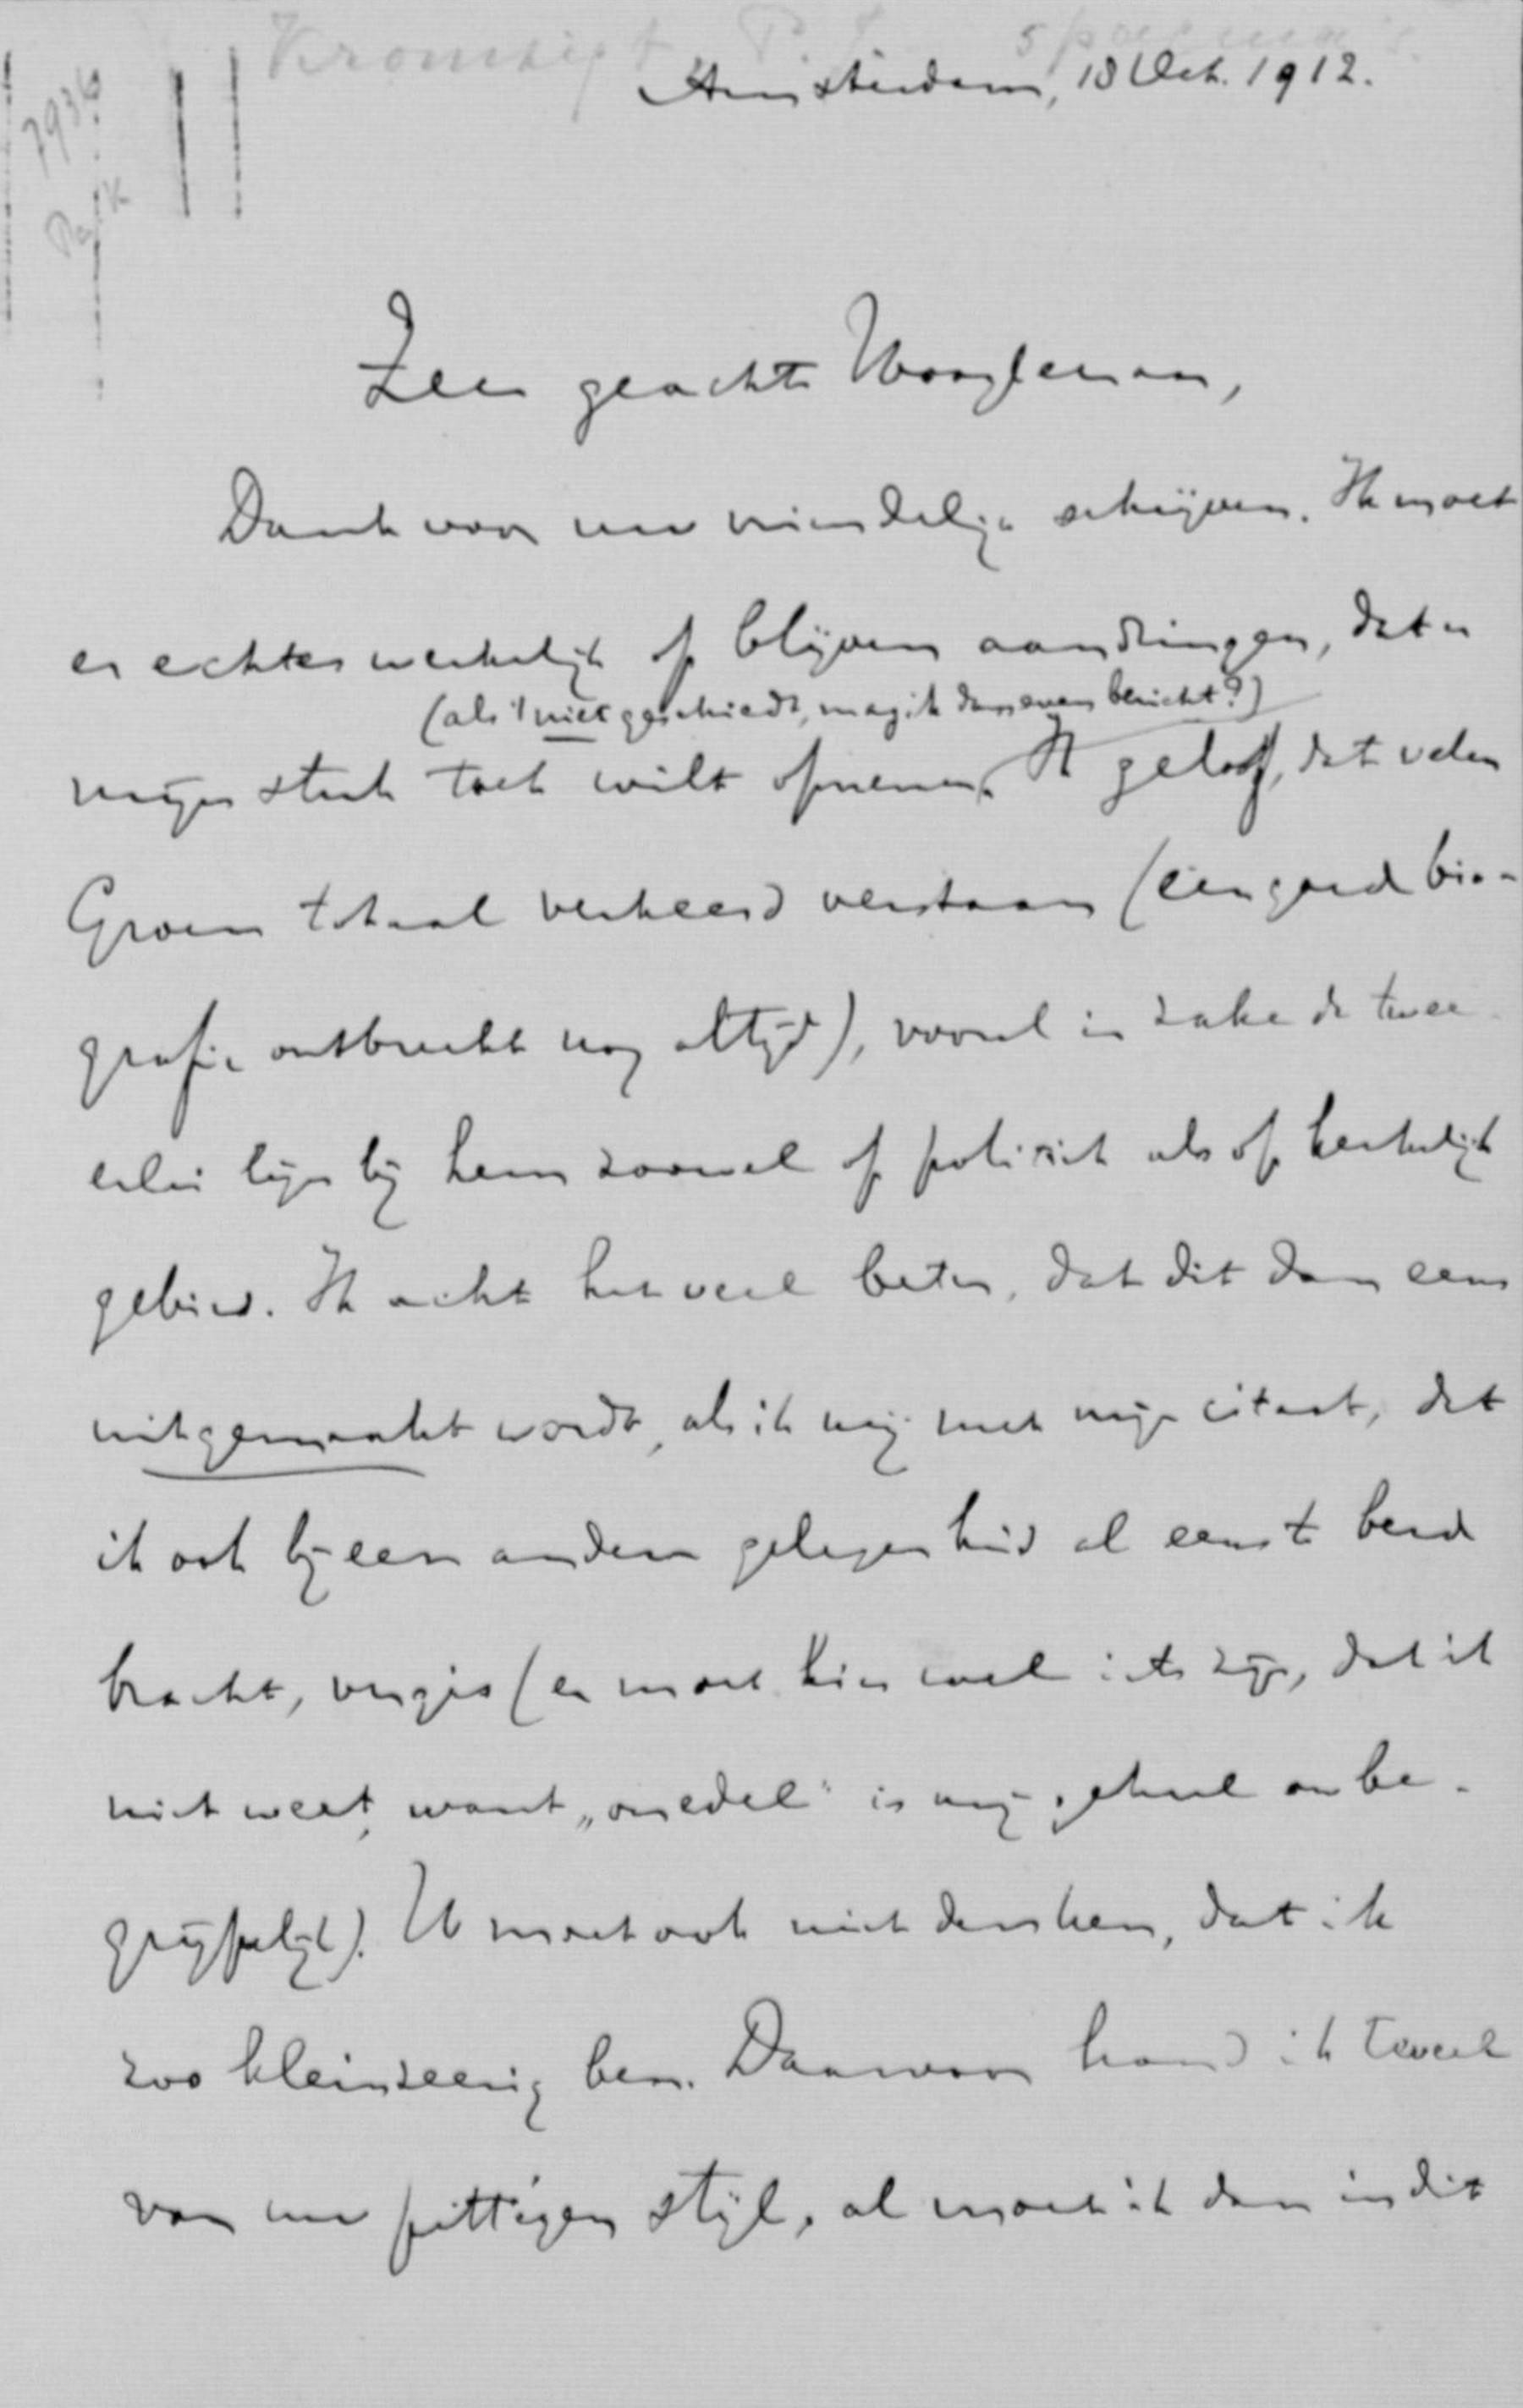 Kromsigt P. J.
7936
Amsterdam, 18 Oct. 1912.
Zeer geachte Hoogleeraar,
Dank voor uw vriendelijk schrijven. Ik moet
er echter werkelijk op blijven aandringen, dat u
(als 't niet geschiedt, mag ik dan even bericht?)
mijn stuk toch wilt opnemen. Ik geloof, dat velen
Groen totaal verkeerd verstaan (een goede bio-
grafie ontbreekt nog altijd), vooral in zake de twee-
erlei lijn bij hem zoowel op politiek als op kerkelijk
gebied. Ik acht het veel beter, dat dit dan eens
uitgemaakt wordt, als ik mij met mijn citaat, dat
ik ook bij een andere gelegenheid al eens te berde
bracht, vergis (er moet hier wel iets zijn, dat ik
niet weet, want „onedel" is mij geheel onbe-
grijpelijk). U moet ook niet denken, dat ik
zoo kleinzeerig ben. Daarvoor houd ik te veel
van uw pittigen stijl, al moet ik dan in dit